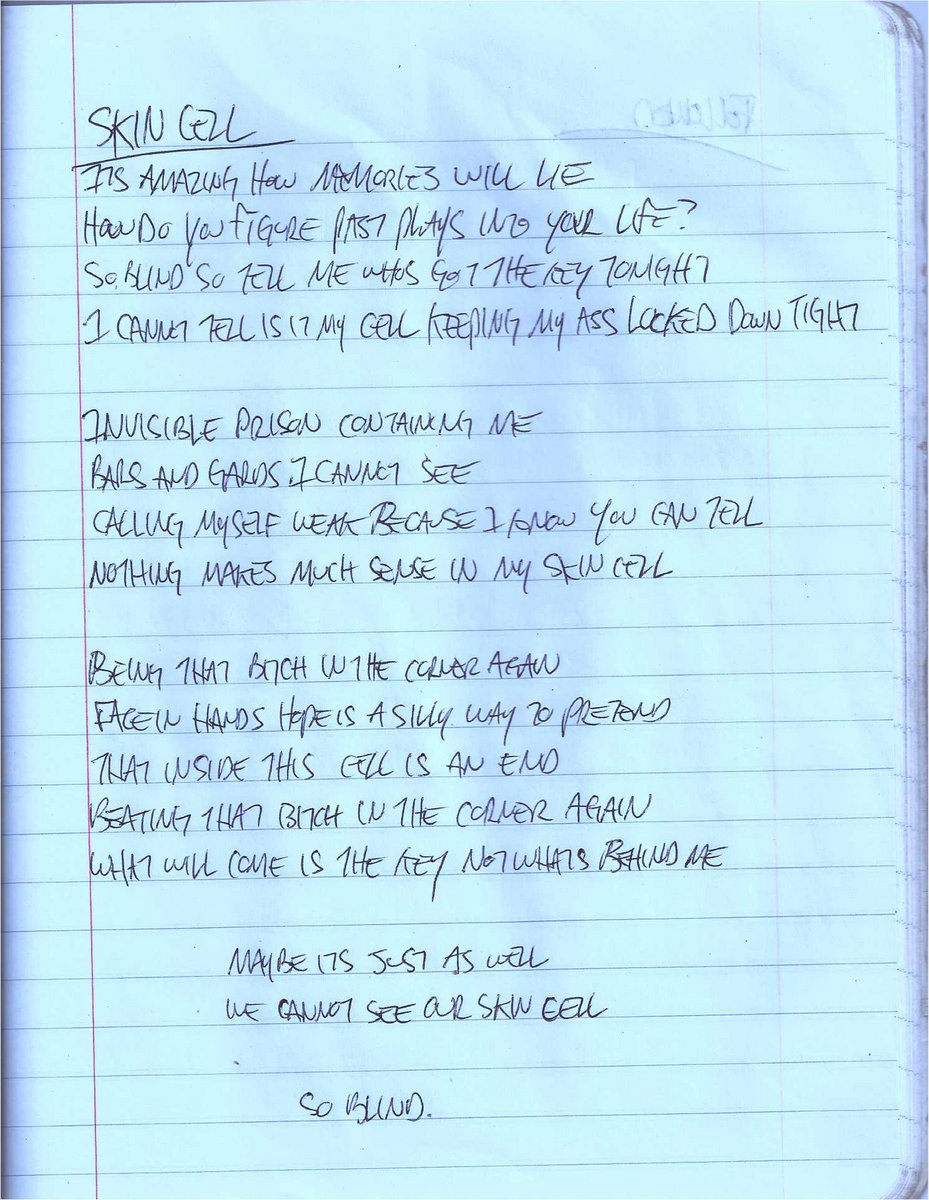 SKIN CELL
ITS AMAZING HOW MEMORIES WILL LIE
HOW DO YOU FIGURE PAST PLAYS INTO YOUR LIFE?
SO BLIND SO TELL ME WHOS GOT THE KEY TONIGHT
I CANNOT TELL IS IT MY CELL KEEPING MY ASS LOCKED DOWN TIGHT
INVISIBLE PRISON CONTAINING ME
BARS AND GARDS I CANNOT SEE
CALLING MYSELF WEAK BECAUSE I KNOW YOU CAN TELL
NOTHING MAKES MUCH SENSE IN MY SKIN CELL
BEING THAT BITCH IN THE CORNER AGAIN
FACE IN HANDS HOPE IS A SILLY WAY TO PRETEND
THAT INSIDE THIS CELL IS AN END
BEATING THAT BITCH IN THE CORNER AGAIN
WHAT WILL COME IS THE KEY NOT WHATS BEHIND ME
MAYBE ITS JUST AS WELL
WE CANNOT SEE OUR SKIN CELL
SO BLIND.